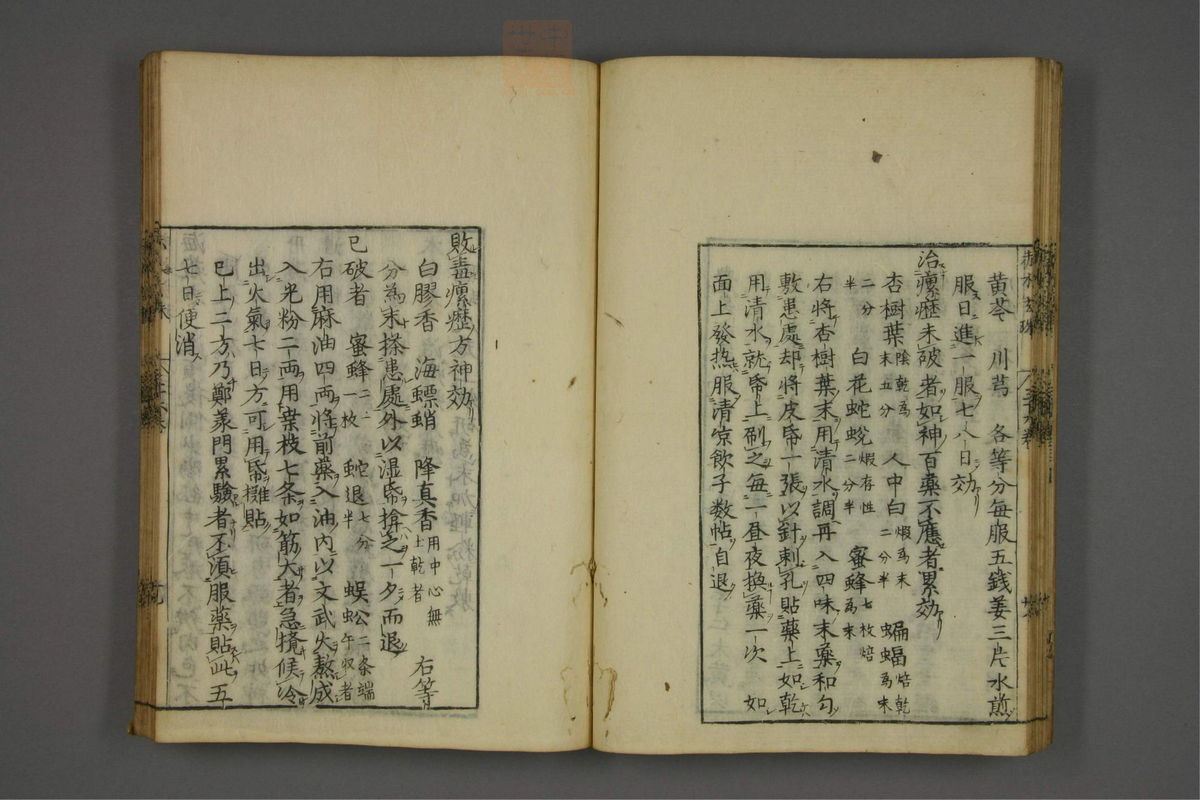 黄芩　川芎　各等分每服五錢姜三片水煎
服日進一服七八日効
治瘰癧未破者如神百藥不應者累効
杏樹葉陰乾為末五分　人中白煅為末二分半　蝙蝠焙乾為末
二分半　白花蛇蛻煅存性二分半　蜜蜂七枚焙為末
右將杏樹葉末用清水調再入四味末藥和勻
敷患處却將皮帋一張以針刺孔貼藥上如乾
用清水就帋上刷之每一昼夜換藥一次　如
面上發热服清凉飲子数帖自退
敗毒瘰癧方神効
白膠香　海螵蛸　降真香用中心無土乾者　右等
分為末搽患處外以湿帋揜之一夕而退
已破者　蜜蜂二十一枚　蛇退七分半　蜈蚣二条端午収者
右用麻油四两將前藥入油内以文武火熬成
入光粉二两用桒枝七条如筋大者急攪候冷
出火氣七日方可用帋攤貼
已上二方乃鄭羡門累驗者不須服藥貼此五
七日便消